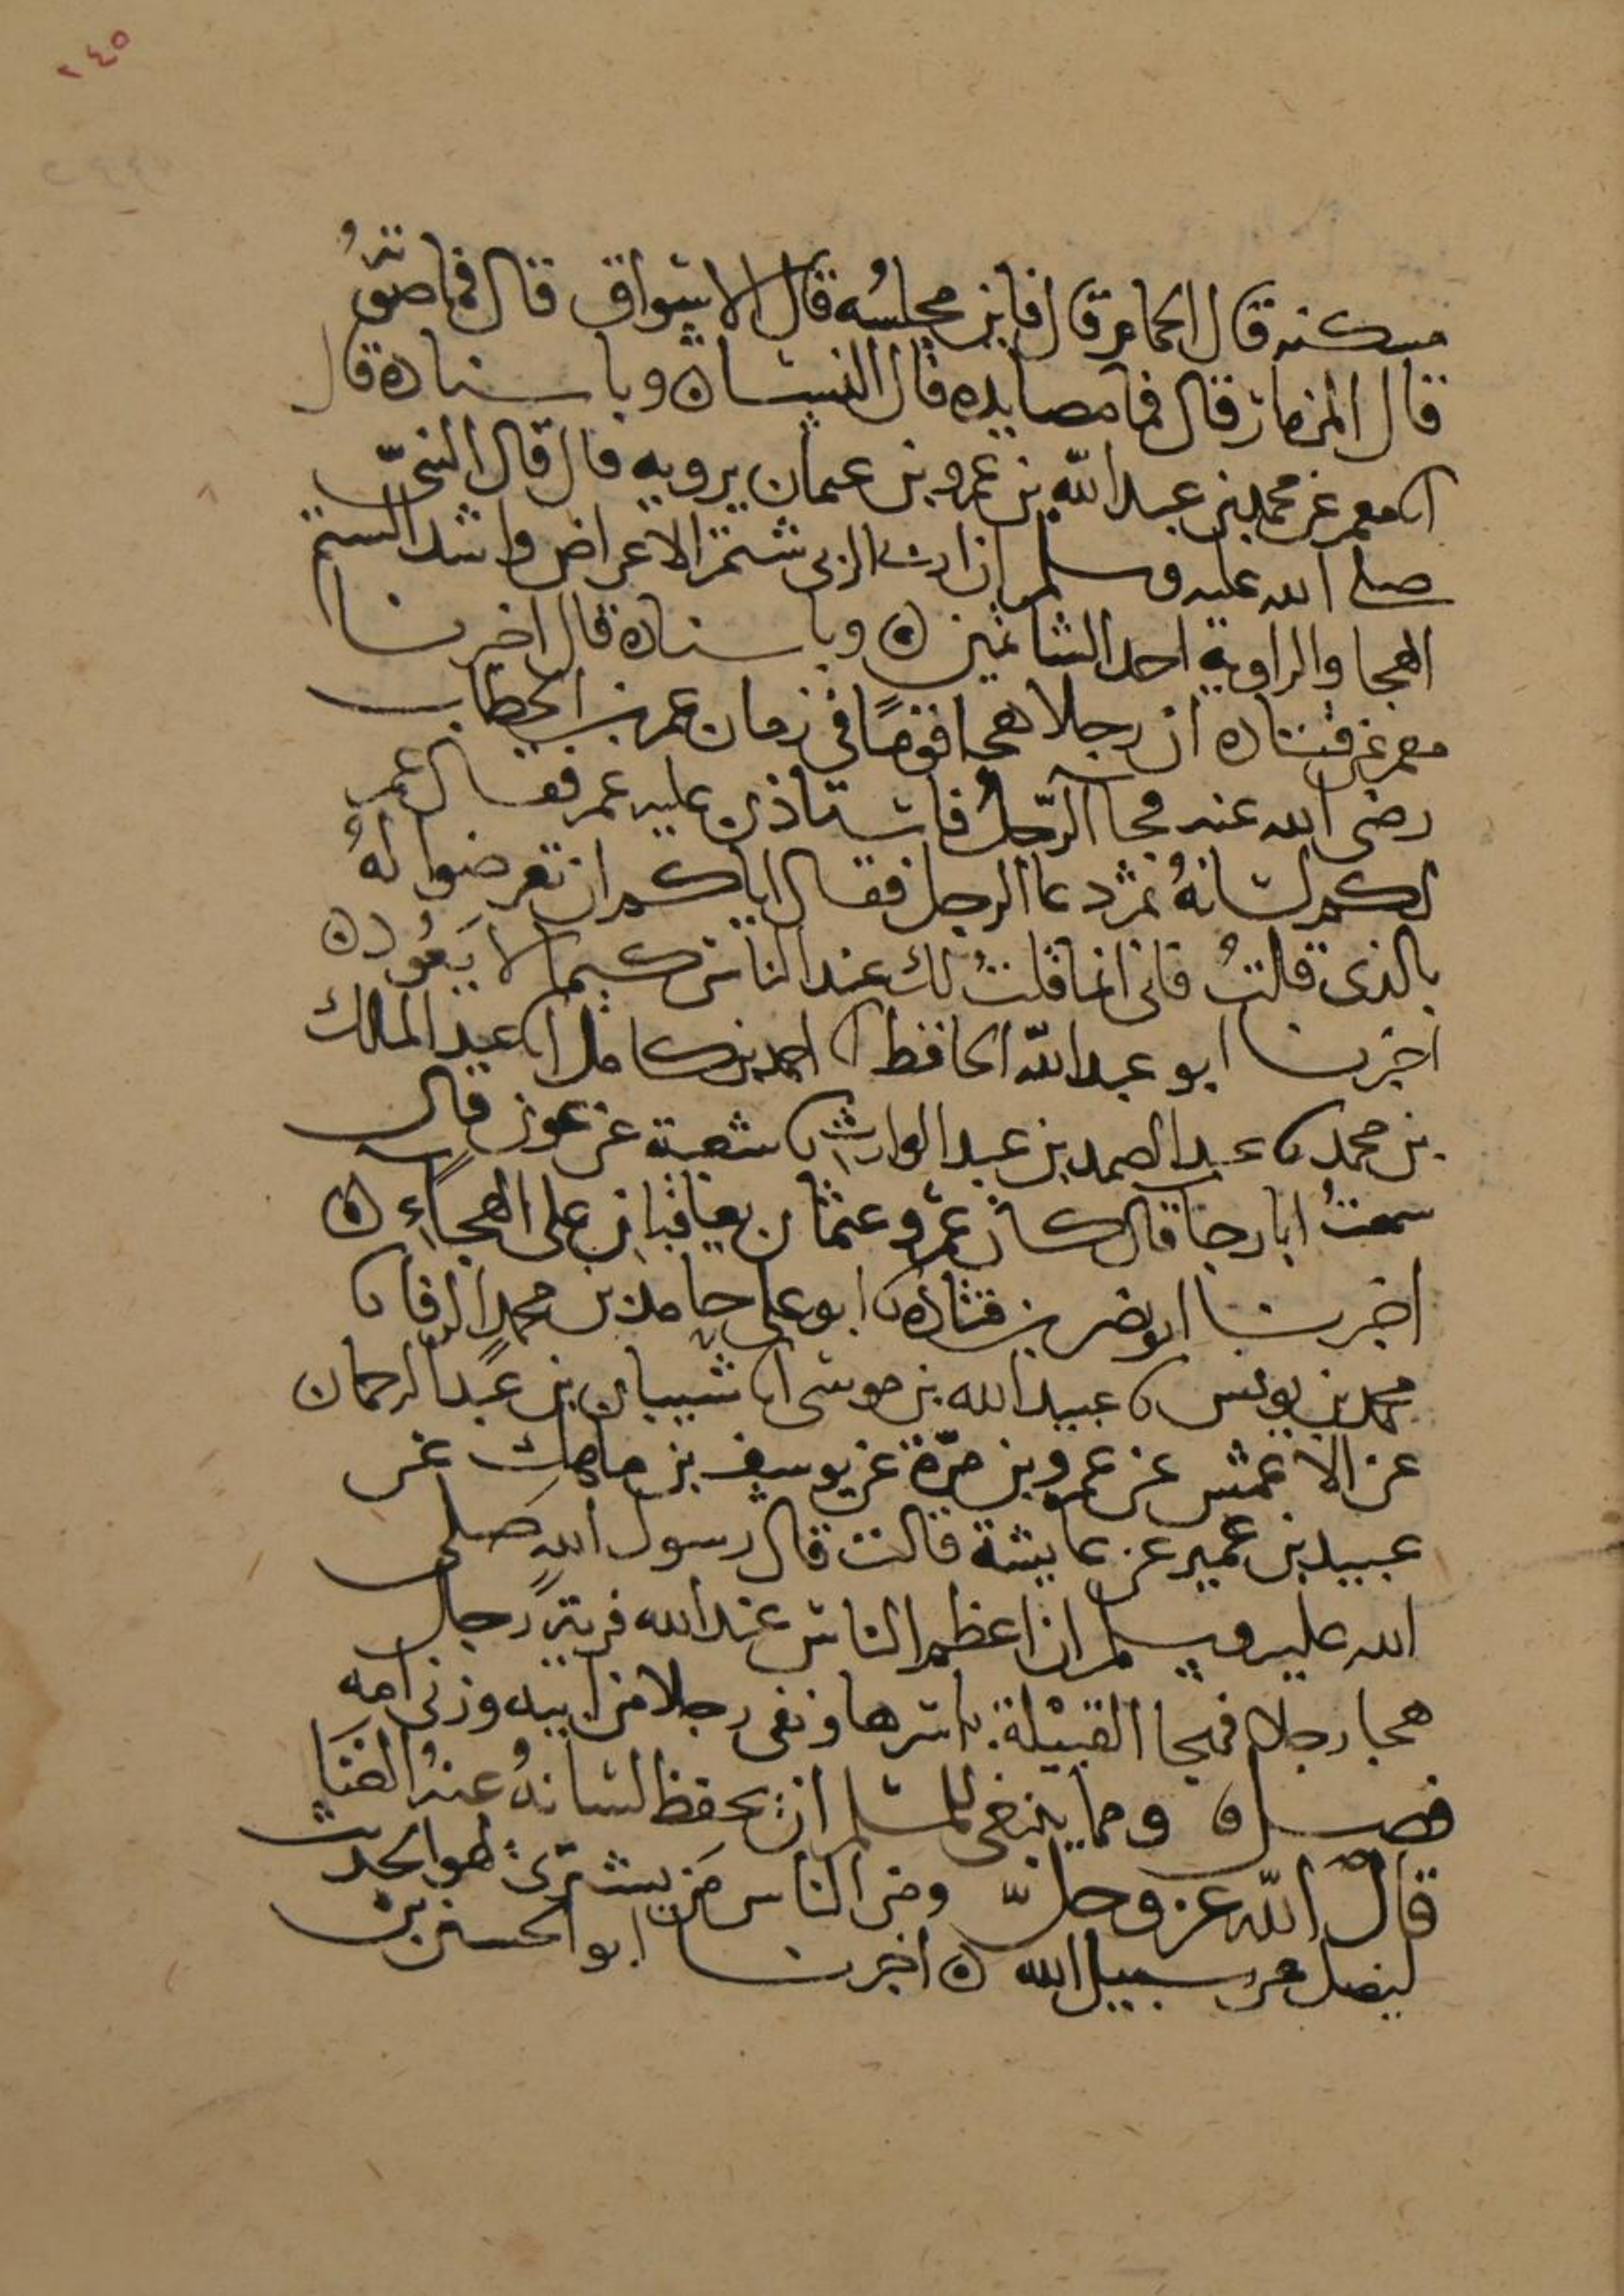 ٢٤٥
مسكنه قال الحمام قال فاين مجلسه قال الاسواق قال فما صوته
قال المزمار قال فما مصايده قال النساء ه وباسناده قال
انا معمر عن محمد بن عبد الله بن عمرو بن عثمان يرويه قال قال النبي
صلى الله عليه وسلم ان اربى الربى شتم الاعراض واشد الشتم
الهجا والراوية احد الشاتمين ه وباسناده قال اخبرنا
معمر عن قتاده ان رجلا هجا قوما في زمان عمر بن الخطاب
رضي الله عنه فجا الرجل فاستاذن عليه عمر فقال عمر
لكم لسانه ثم دعا الرجل فقال اياكم ان تعرضوا له
بالذي قلت فاني انما قلت لك عند الناس كيما لا يعود ه
اخبرنا ابو عبد الله الحافظ انا احمد بن كامل انا عبد الملك
بن محمد نا عبد الصمد بن عبد الوارث نا شعبة عن عون قال
سمعت ابا رجا قال كان عمر وعثمان يعاقبان على الهجاء ه
اخبرنا ابو نصر بن قتاده نا ابو علي حامد بن محمد الرفا نا
محمد بن يونس نا عبيد الله بن موسى انا شيبان بن عبد الرحمان
عن الاعمش عن عمرو بن مرة عن يوسف بن ماهك عن
عبيد بن عمير عن عايشة قالت قال رسول الله صلى
الله عليه وسلم ان اعظم الناس عند الله فرية رجل
هجا رجلا فهجا القبيلة باسرها ونفى رجلا من ابيه وزنى امه
فصل ه ومما ينبغي للمسلم ان يحفظ لسانه عنه الغنا
قال الله عز وجل ومن الناس من يشتري لهو الحديث
ليضل عن سبيل الله ه اخبرنا ابو الحسين بن